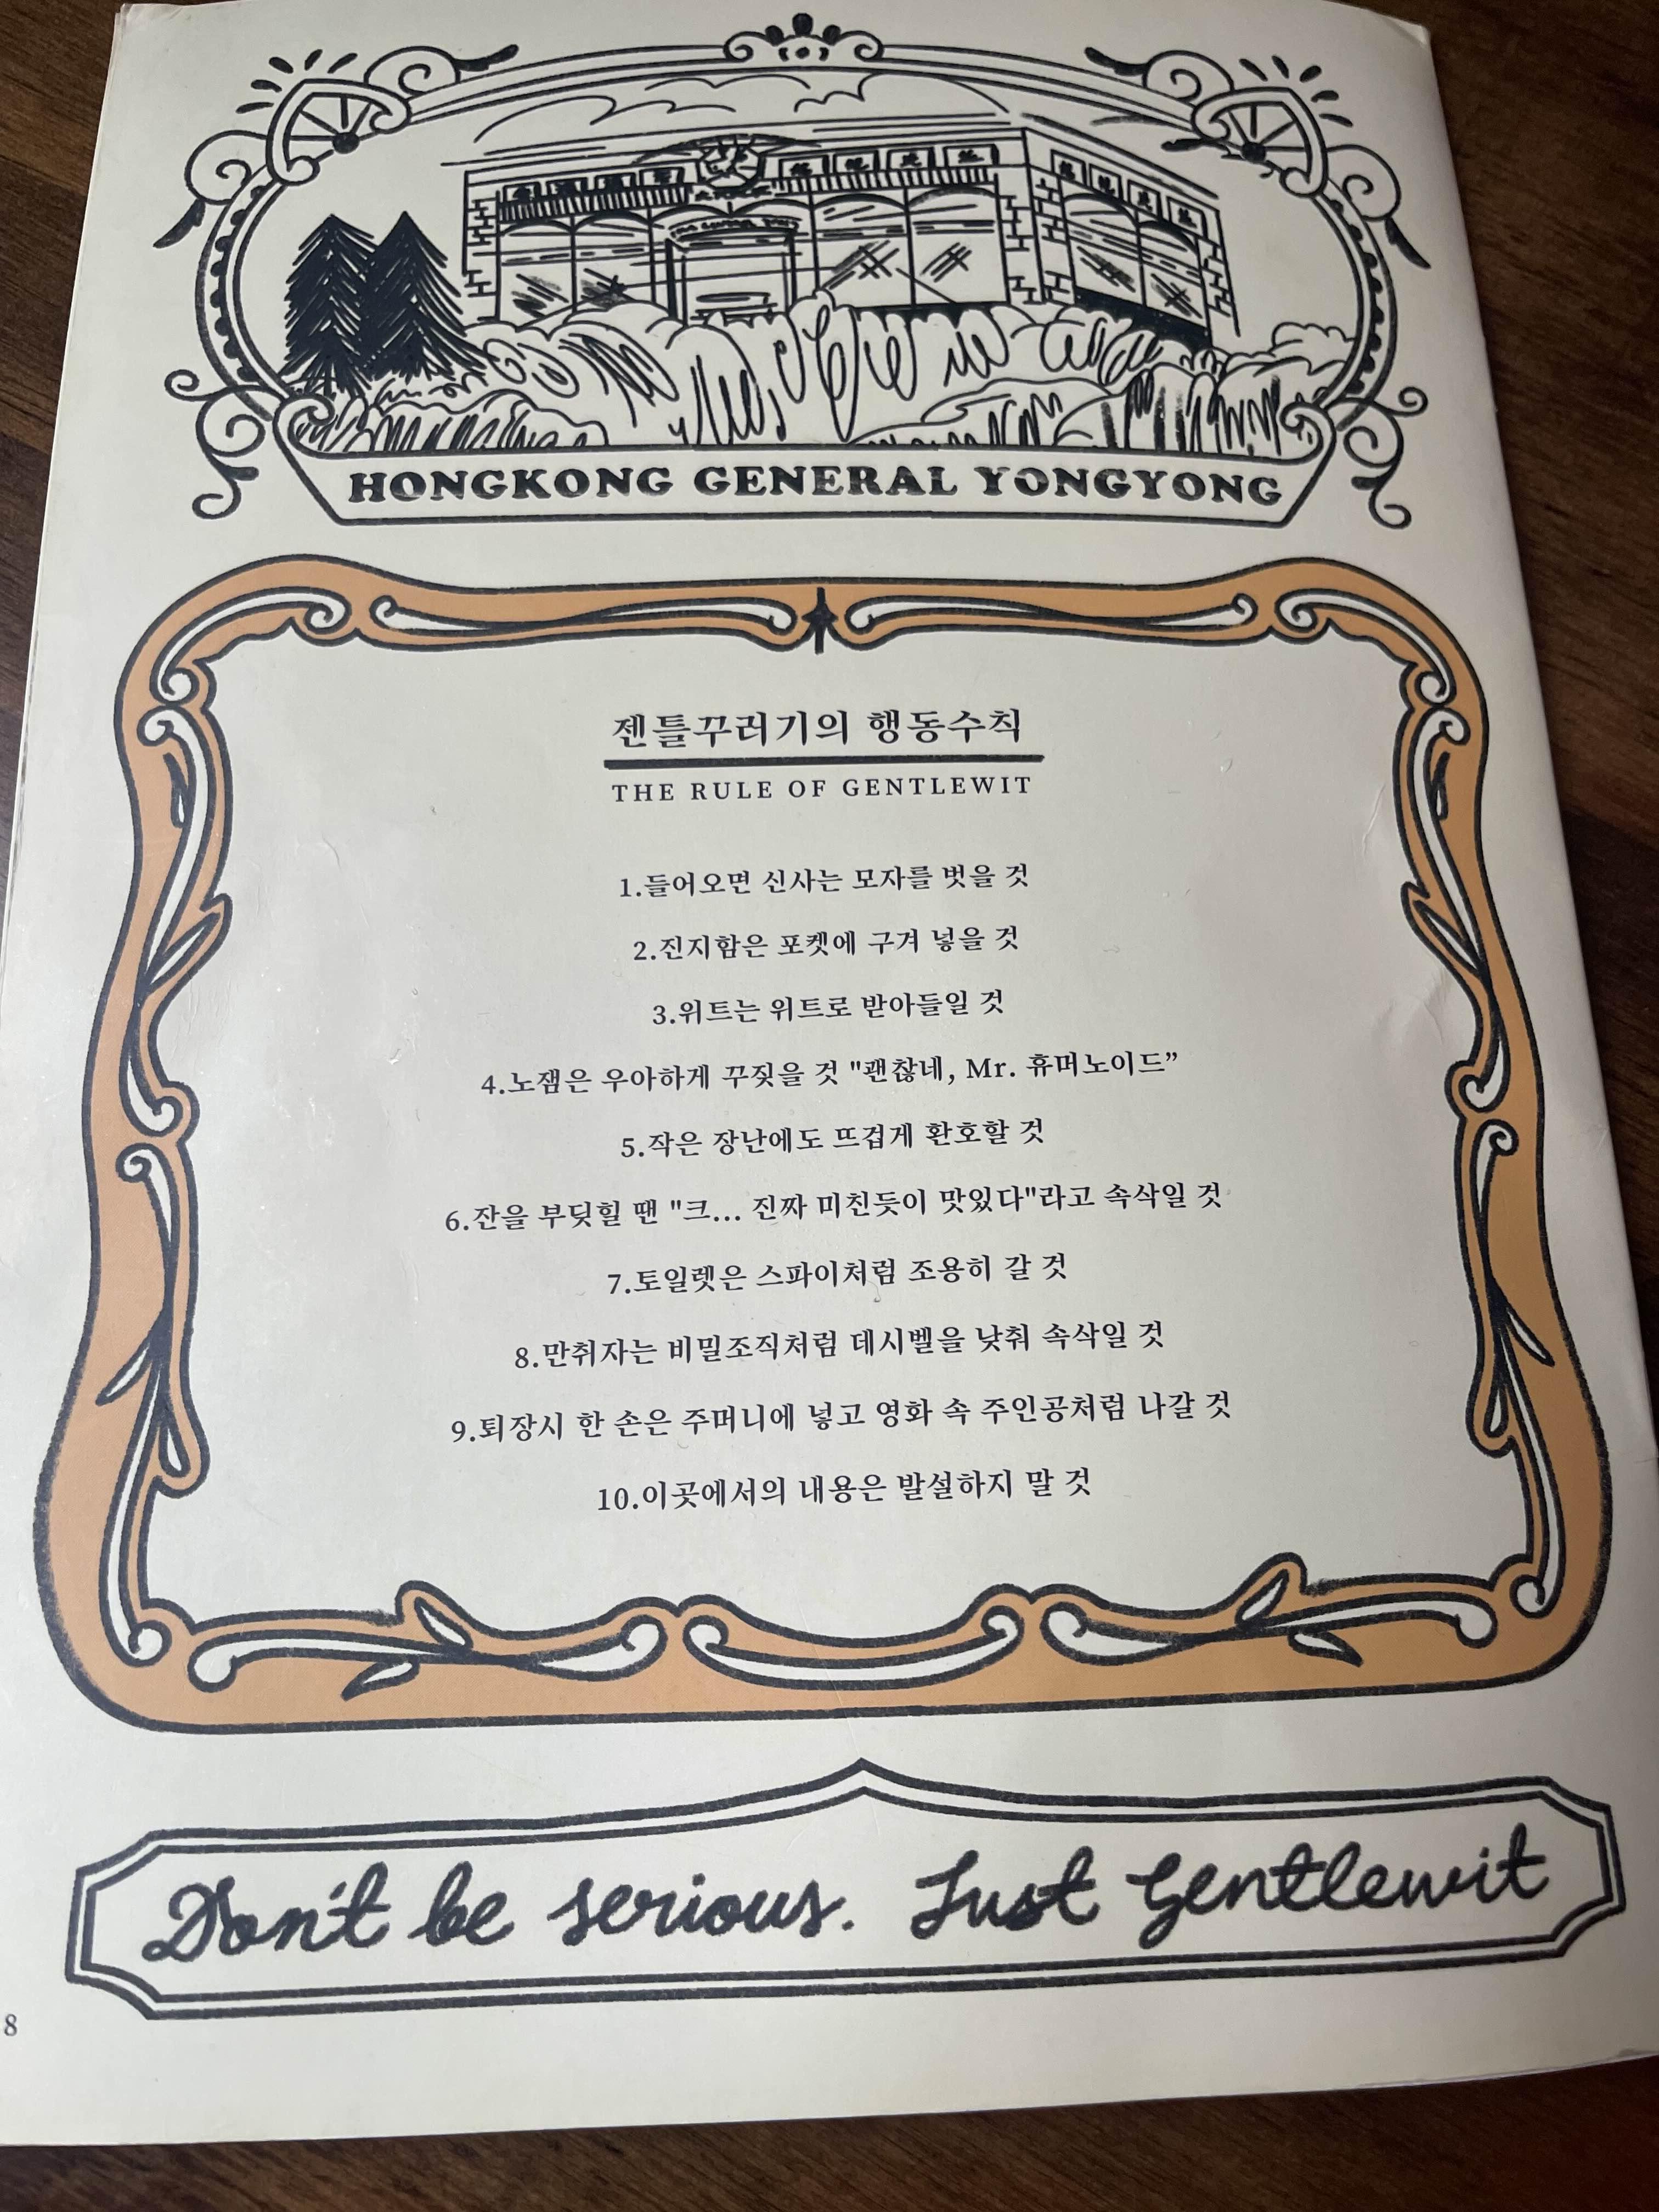 HONGKONG GENERAL YONGYONG
젠틀꾸러기의 행동수칙
THE RULE OF GENTLEWIT
1.들어오면 신사는 모자를 벗을 것
2.진지함은 포켓에 구겨 넣을 것
3.위트는 위트로 받아들일 것
4.노잼은 우아하게 꾸짖을 것 "괜찮네, Mr. 휴머노이드”
5.작은 장난에도 뜨겁게 환호할 것
6.잔을 부딪힐 땐 "크... 진짜 미친듯이 맛있다"라고 속삭일 것
7.토일렛은 스파이처럼 조용히 갈 것
8.만취자는 비밀조직처럼 데시벨을 낮춰 속삭일 것
9.퇴장시 한 손은 주머니에 넣고 영화 속 주인공처럼 나갈 것
10.이곳에서의 내용은 발설하지 말 것
Don't be serious. Just Gentlewit
8